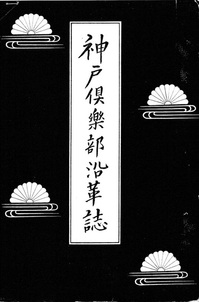 神戸倶樂部沿革誌